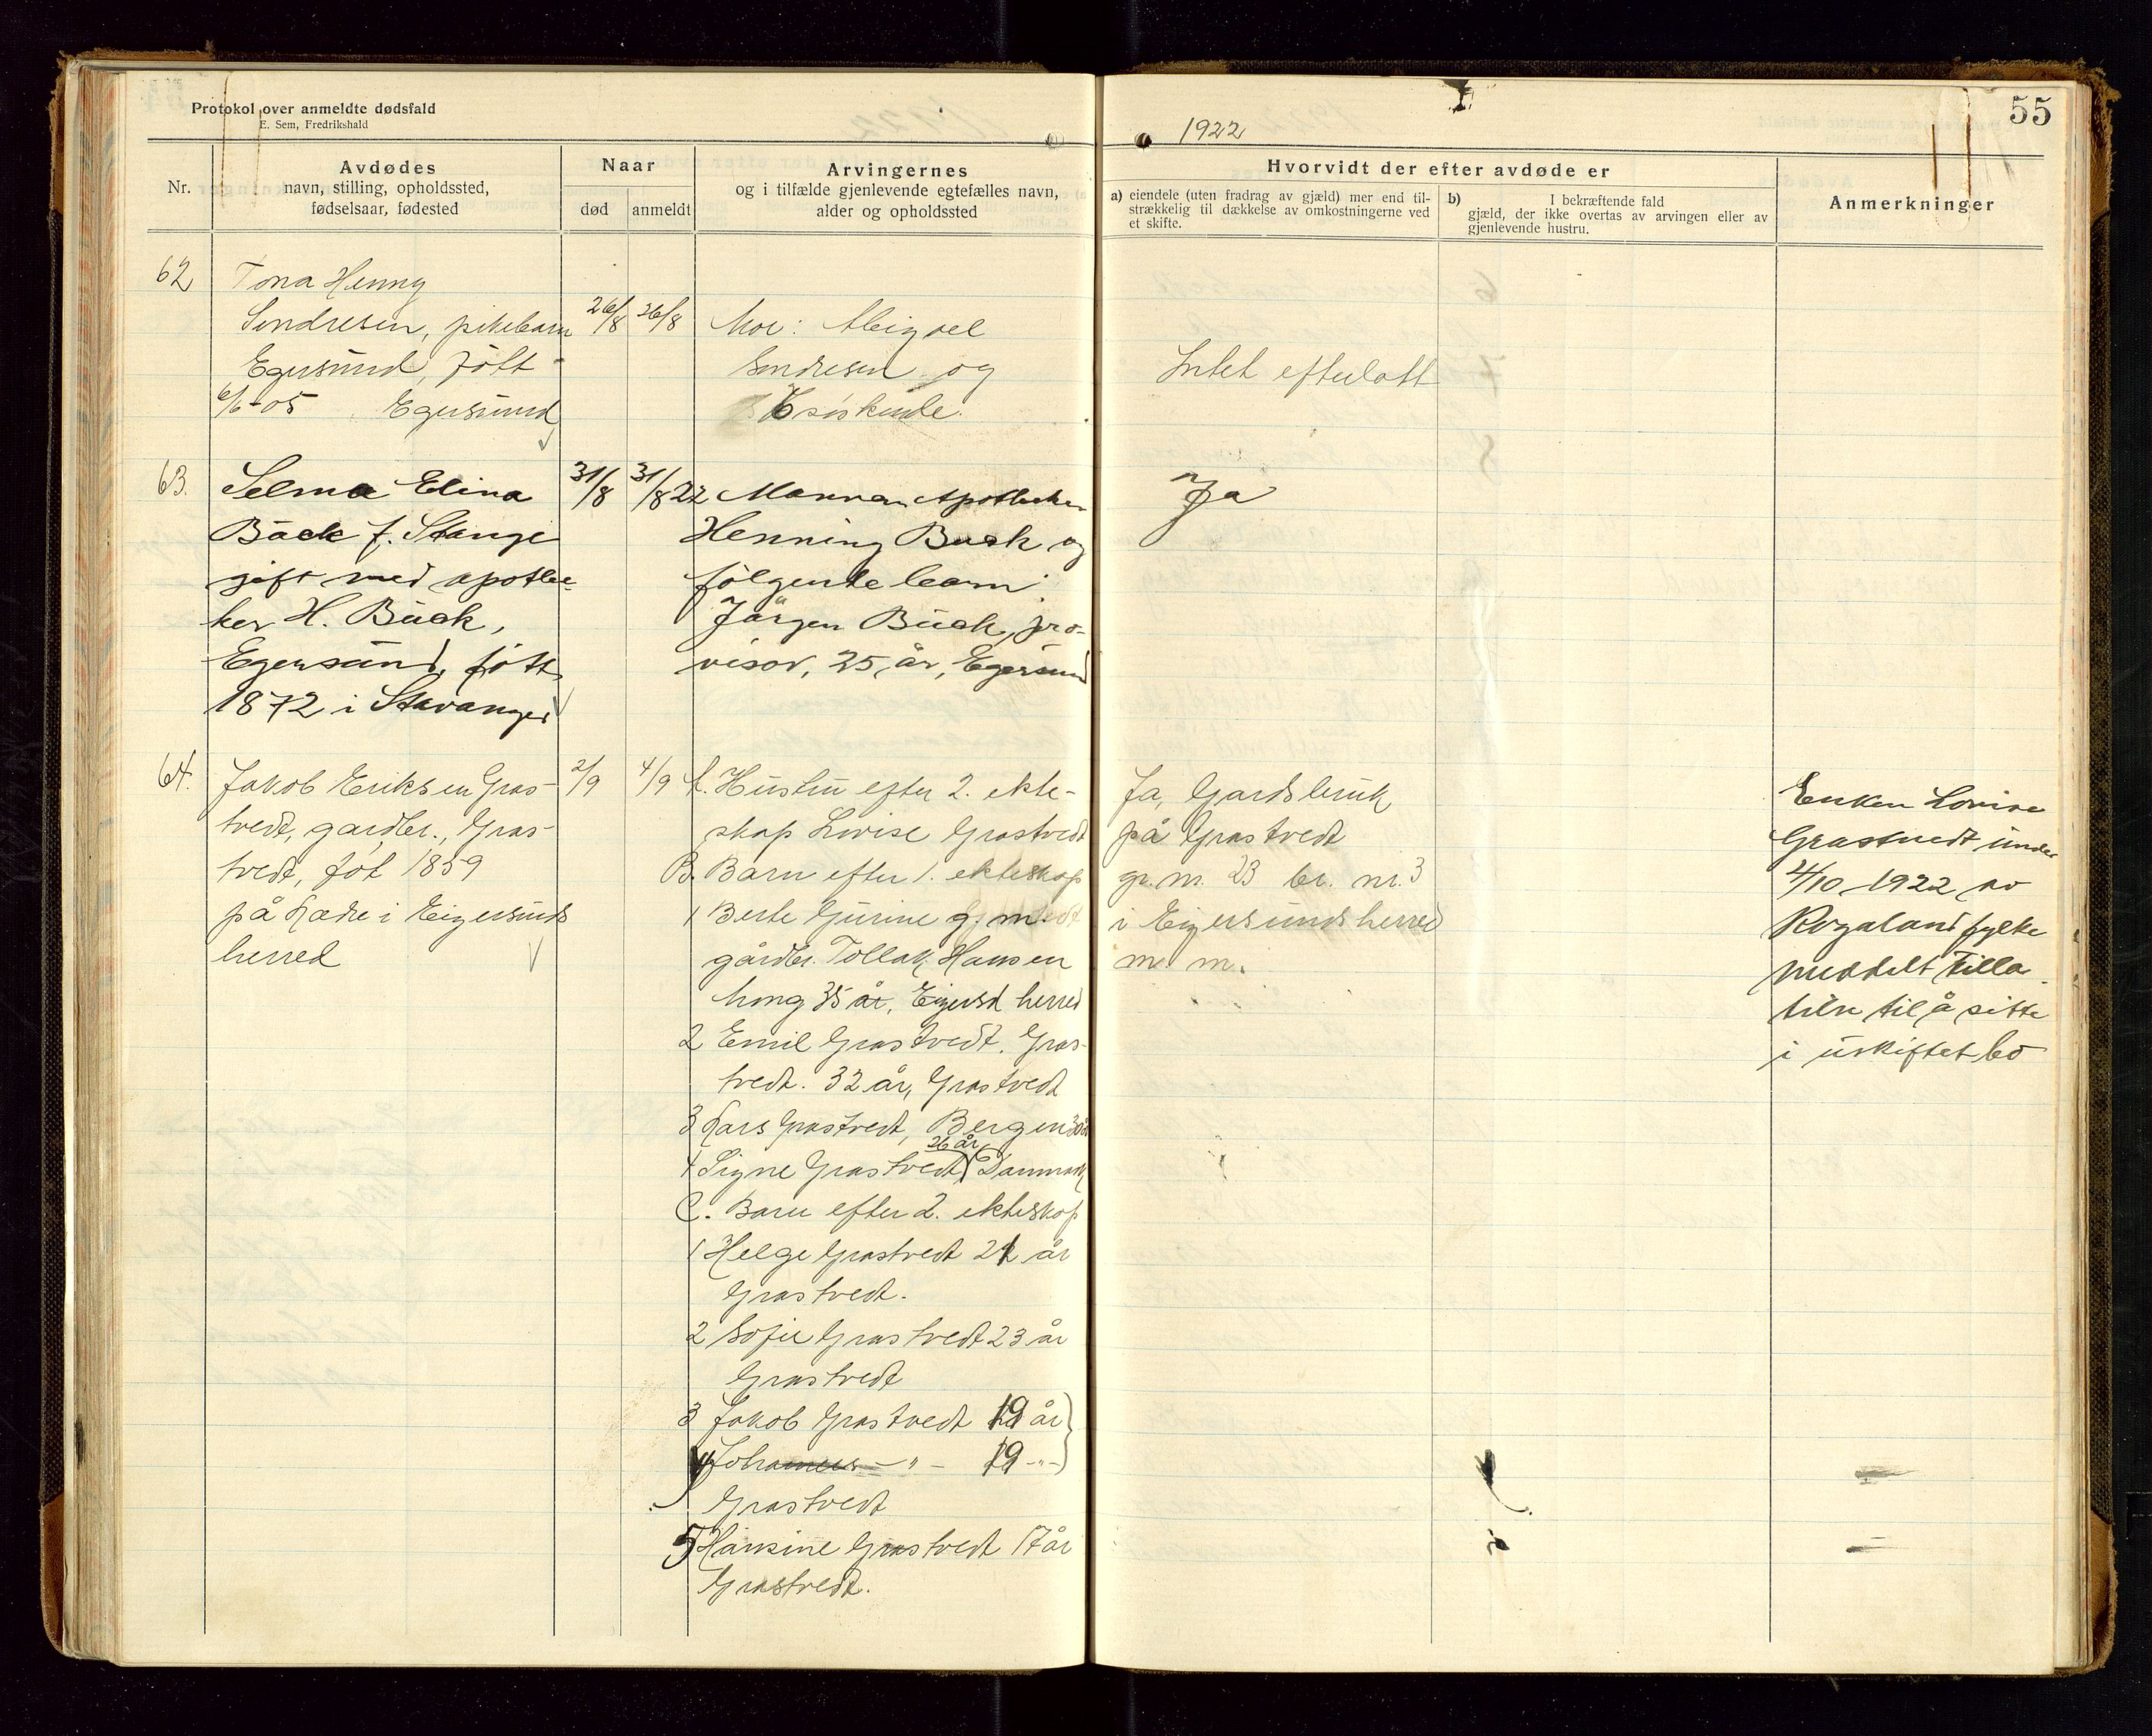 Protokol over anmeldte dødsfald
E. Sem, Fredrikshald
1922
55
Nr.
Avdødes
navn, stilling, opholdssted,
fødselsaar, fødested
Naar
død
anmeldt
Arvingernes
og i tilfælde gjenlevende egtefælles navn,
alder og opholdssted
Hvorvidt der efter avdøde er
a) eiendele (uten fradrag av gjæld) mer end til-
strækkelig til dækkelse av omkostningerne ved
et skifte.
b) I bekræftende fald
gjæld, der ikke overtas av arvingen eller av
gjenlevende hustru.
Anmerkninger
62
Tona Henny
Sendresen, pikebarn
Egersund, født
6/6-05 Egersund
26/8
26/8
Mor: Abigael
Sendresen og
søskende.
Intet efterlatt
63.
Selma Elina
Buck f. Stange
gift med apothe-
ker H. Buck,
Egersund, født
1872 i Stavanger
31/8
31/8 22
Mannen Apotheker
Henning Buck og
følgende barn:
Jørgen Buck, pro-
visor, 25 år, Egersund
Ja
64.
Jakob Eriksen Gras-
tvedt, gardbr., Gras-
tvedt, føt 1859
på Lædre i Eigersunds
herred
2/9
4/9
A. Hustru efter 2. ekte-
skap Lovise Grastvedt
B. Barn efter 1. ekteskap
1 Berte Gurine g. m.
gårdbr. Tollak Hansen
35 år, Eigersd herred
2 Emil Grastvedt, Gras-
tvedt. 32 år, Grastvedt
3 Lars Grastvedt, Bergen 30 år
26 år
4 Signe Grastvedt, Danmark
C. Barn efter 2. ekteskap
1 Helge Grastvedt år
Grastvedt.
2 Sofie Grastvedt 23 år
Grastvedt
3 Jakob Grastvedt 19 år
4 Johannes -"- 19 -"-
Grastvedt
5 Hansine Grastvedt 17 år
Grastvedt.
Ja, Gardsbruk
på Grastvedt
gr. nr. 23 br. nr. 3
i Eigersunds herred
m. m.
Enken Lovise
Grastvedt under
4/10 1922 av
Rogaland fylke
meddelt tilla-
telse til å sitte
i uskiftet bo